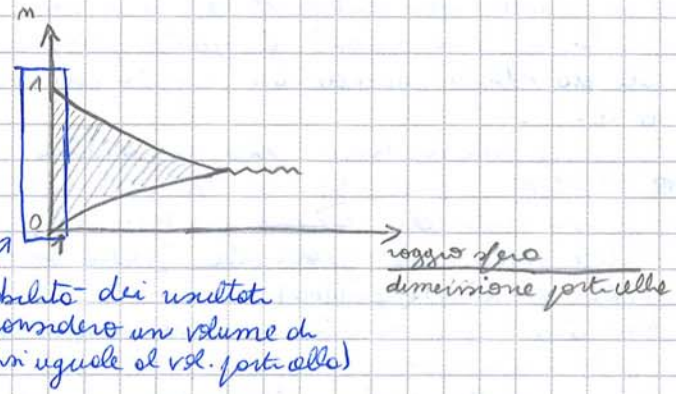 n
1
0
raggio sfera
dimensione particelle
bilità dei risultati
onsidero un volume di
si uguale al vol. particella)